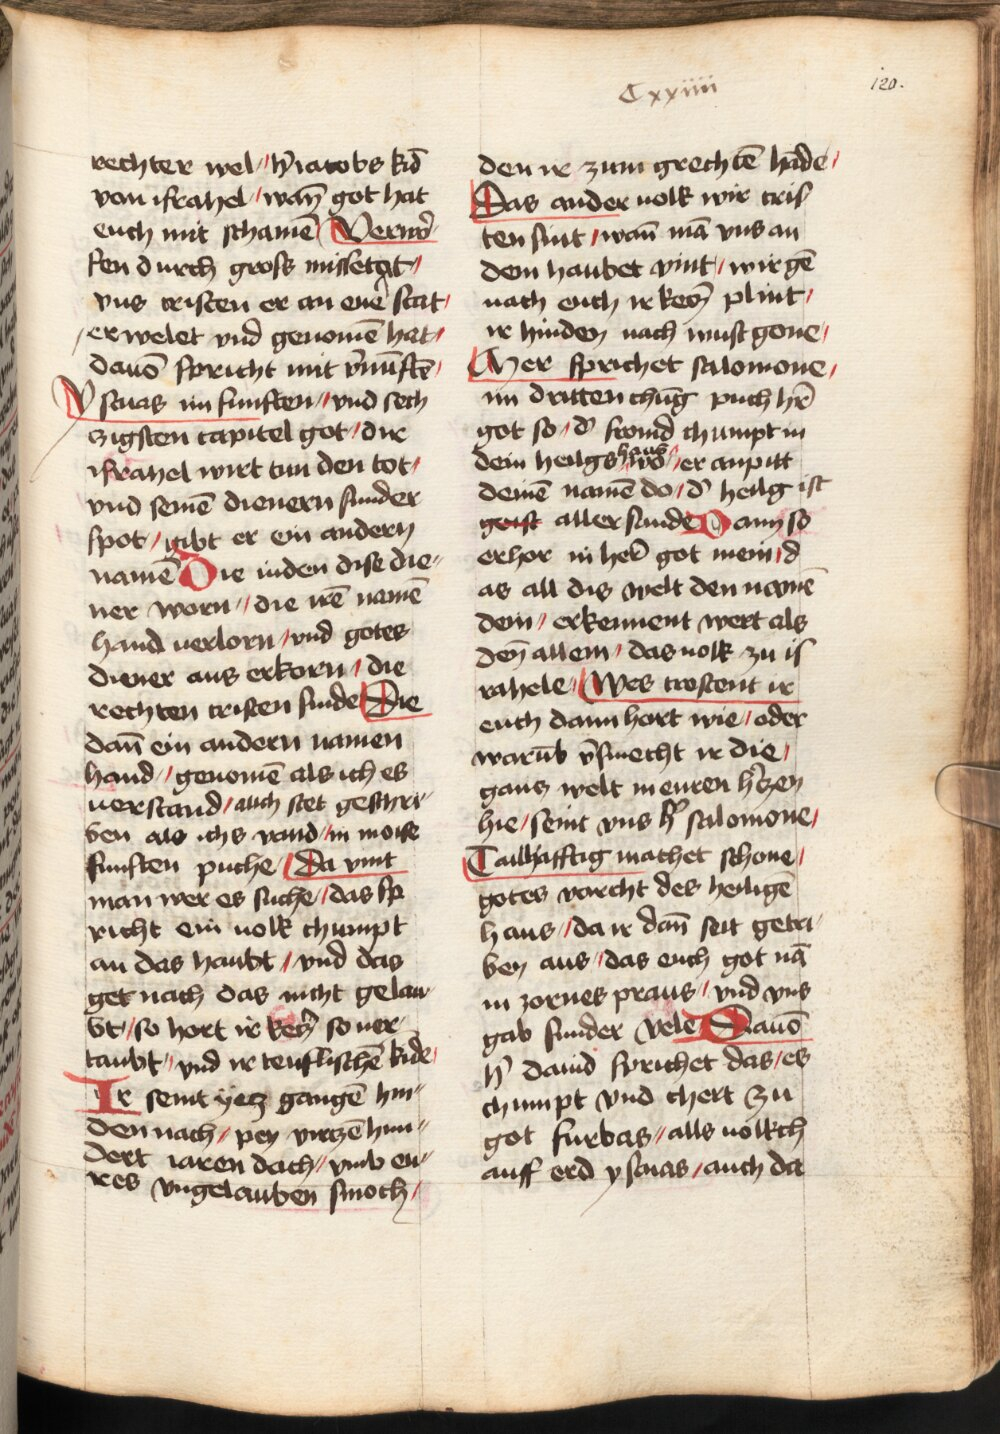 Cxxiiii
120.
rechter wel / h̕ iacobs kid̄
von israhel / wan̄ got hat
euch mit schamē Verwor̕
fen durch gross missetat /
vns cristen er an eur̕ stat /
erwelet vnd genomē hat /
dauō spricht mit v̕nunftē /
Ysaias im funften / vnd sech
zigsten capitel got / die
israhel wirt tun den tot /
vnd seinē dienern sunder
spot / gibt er ein andern
namē Die iuden dise die⸗
ner worn / die irē namē
hand uerlorn / vnd gotes
diener aus erkorn / die
rechten cristen sinde Die
dan̄ ein andern namen
hand / genomē als ich es
uerstand / auch stet geschri⸗
ben als ichs vand / in moise
funften puche / Da vint
man wer es suche / das sp
richt ein uolk chumpt
an das haubt / vnd das
get nach das nicht gelau⸗
bt / so hort ir keczer̕ so uer⸗
taubt / vnd ir teuflischē kīde /
Ir seint yecz gangē hin⸗
den nach / pey virczē hun⸗
dert iaren dach / vmb eu⸗
res vngelauben smoch /
den ir zum grechtē hāde /
Das ander uolk wir cris
ten sint / wan̄ mā vns an
dem haubet vint / wir gē
nach euch ir keczer̕ plint /
ir hinden nach must gone /
Wer sprichet salomone /
im dritten chūg puch her̄
got so / d̕ fromd chumpt in
dein heilgs haus / er anpitt
deinē namē do / d̕ heilg ist
geist aller sunde Dann so
erhor in her̄ got mein / d
as all dis welt den namē
dein / erkennent wert als
den̄ allem / das uolk zu is
rahele / Wes trostent ir
euch dann hort wie / oder
warūb v̕smecht ir die /
gans welt in euren h̕czen
hie / seint vns h̕ salomone /
Tailhafftig machet schone /
gotes vorcht des heiligē
haus / da ir dan̄ seit getri⸗
ben aus / das euch got nā
in zornes praus / vnd vns
gab sunder vele Dauō
h̕ dauid sprichet das / es
chumpt vnd chert zu
got furbas / alls uolkch
auff erd ysaias / auch da